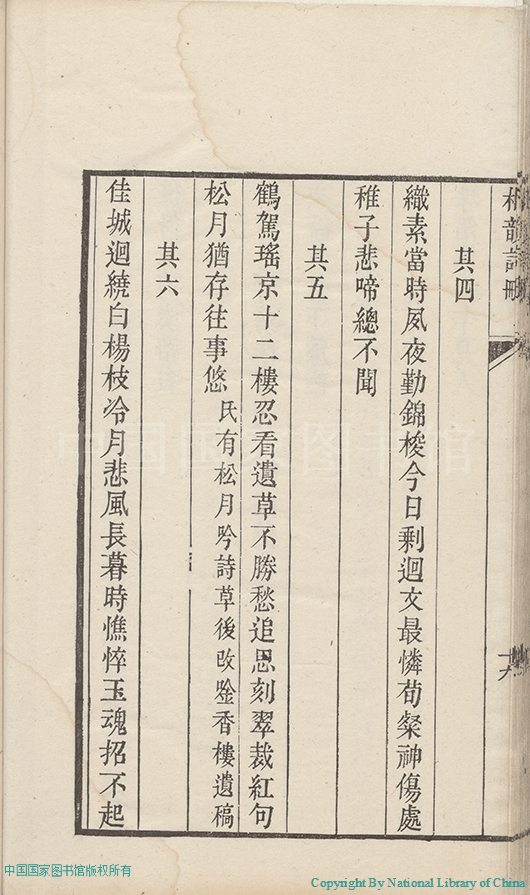 其四
織素當時夙夜勤錦梭今日剩迴文最憐荀粲神傷處
稚子悲啼總不聞
其五
鶴駕瑤京十二樓忍看遺草不勝愁追思刻翠裁紅句
松月猶存往事悠氏有松月吟詩草後改唫香樓遺稿
其六
佳城迴繞白楊枝冷月悲風長暮時憔悴玉魂招不起
中国国家图书馆
中国国家图书馆版权所有
Copyright By National Library of China